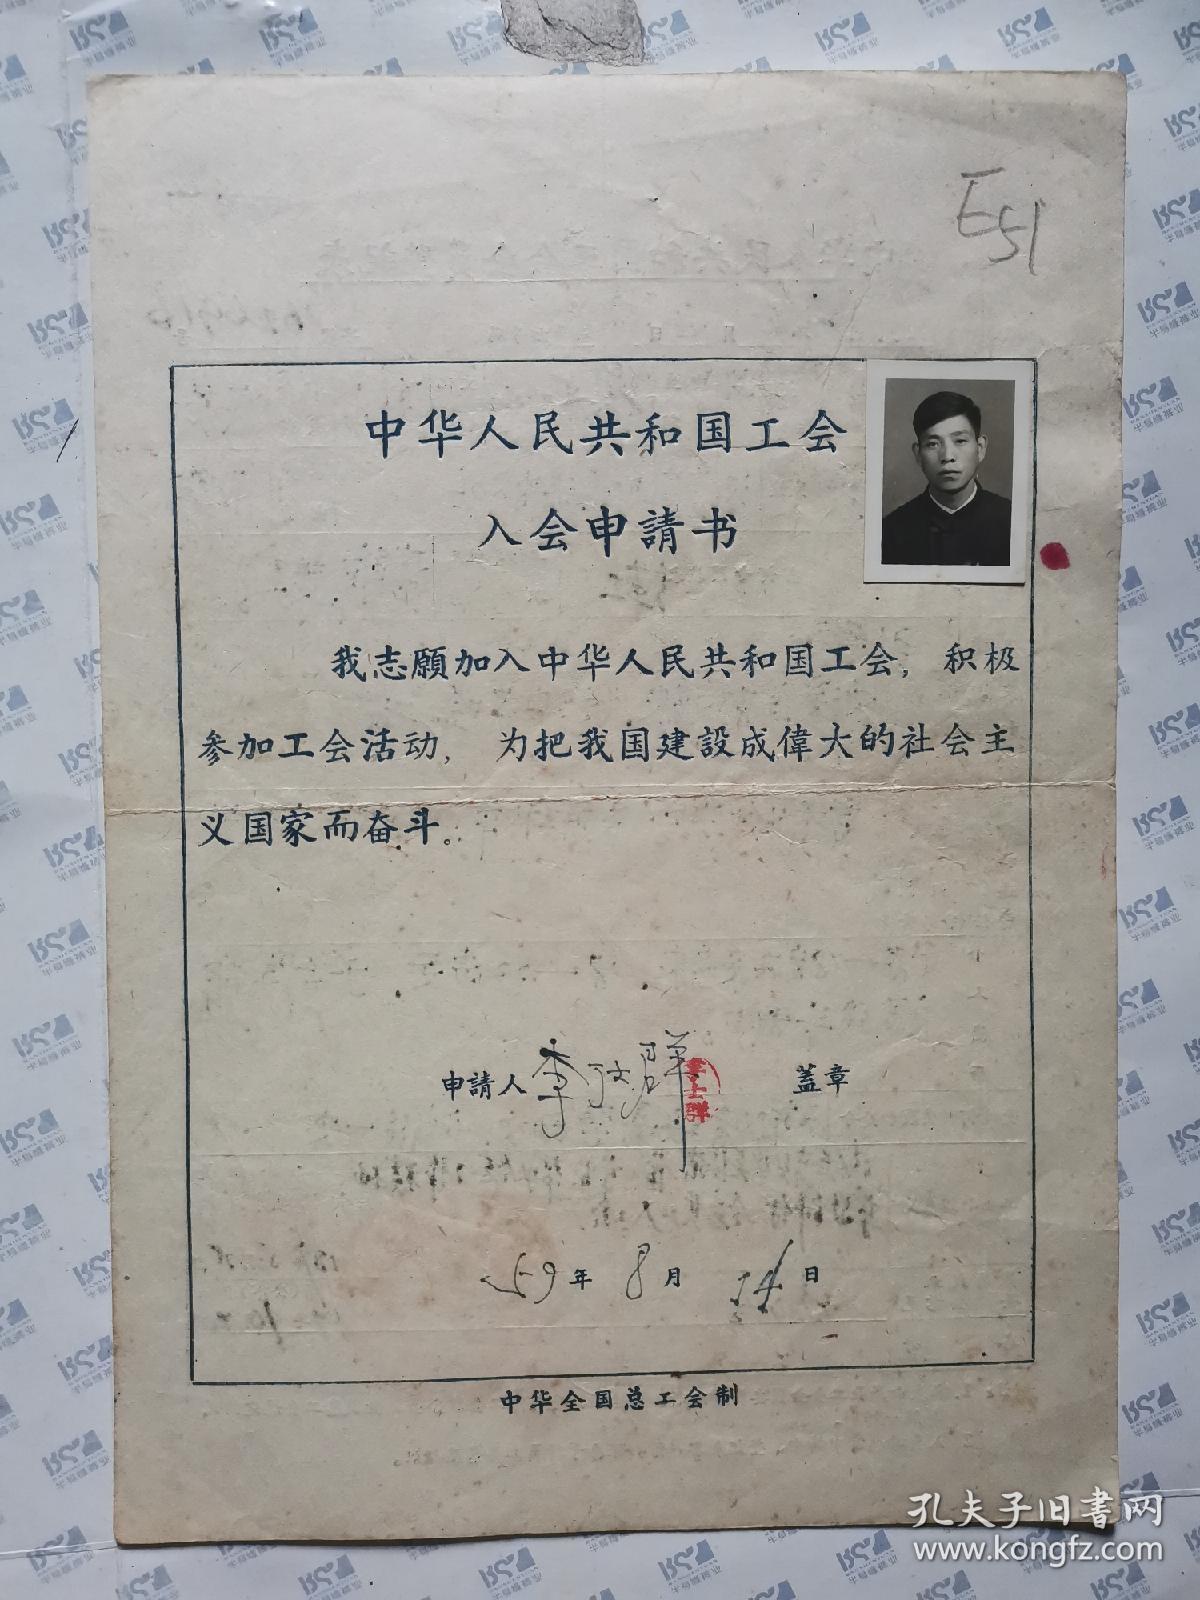 E51
中华人民共和国工会
入会申請书
我志願加入中华人民共和国工会，积极
参加工会活动，为把我国建設成偉大的社会主
义国家而奋斗。
申請人 李 群 盖章
59年 8月 14日
中华全国总工会制
孔夫子旧書网
www.kongfz.com